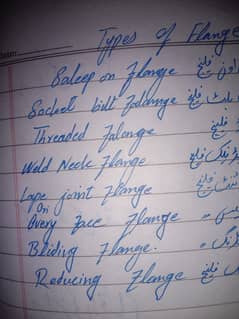 Types of Flange
Saleep on Flange
Socket bilt Flange فلنج
Threaded Falange فلنج
Weld Neck Flange فلنج
Lape joint Flange
On
Overy Face Flange
Bliding Flange.
Reducing Flange فلنج